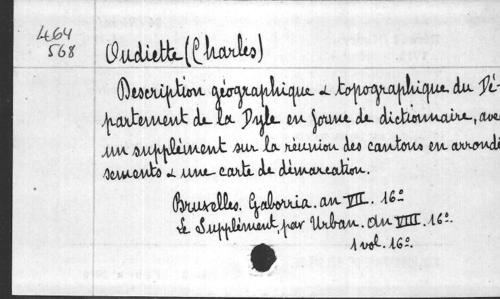 464
568
Oudiette (Charles)
Description géographique & topographique du Dé-
partement de la Dyle en forme de dictionnaire, avec
un supplément sur la réunion des cantons en arrondi
sements & une carte de démarcation.
Bruxelles. Gaborria. an VII. 16º
Le Supplément par Urban. an VIII. 16º.
1 vol. 16º.